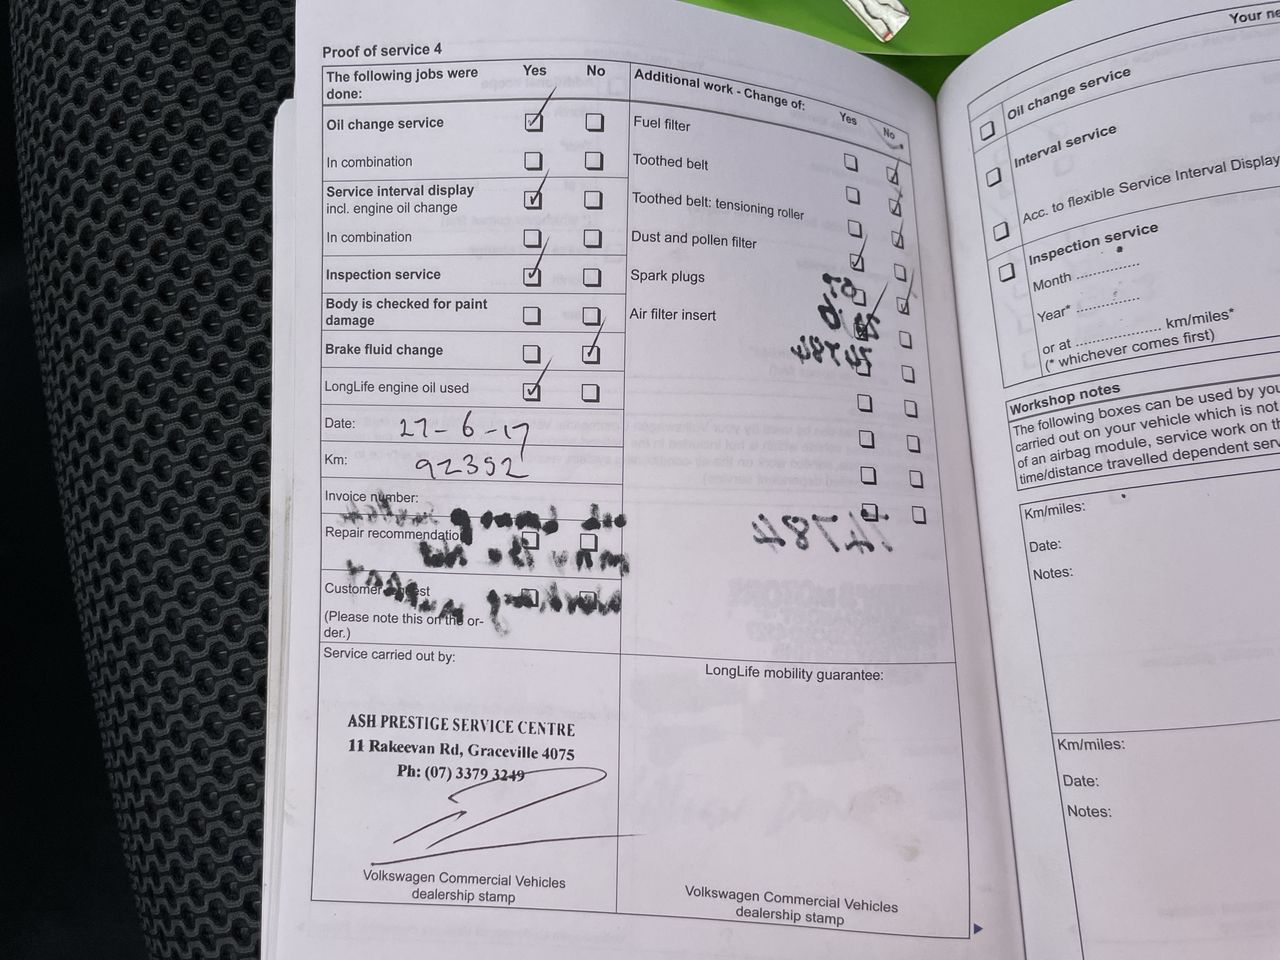 Proof of service 4
The following jobs were done:
Yes
No
Oil change service
In combination
Service interval display
incl. engine oil change
In combination
Inspection service
Body is checked for paint
damage
Brake fluid change
LongLife engine oil used
Date: 27-6-17
Km: 92352
Invoice number:
Repair recommendation
Customer request
(Please note this on the or-
der.)
Service carried out by:
ASH PRESTIGE SERVICE CENTRE
11 Rakeevan Rd, Graceville 4075
Ph: (07) 3379 3249
Volkswagen Commercial Vehicles
dealership stamp
Additional work - Change of:
Yes
No
Fuel filter
Toothed belt
Toothed belt: tensioning roller
Dust and pollen filter
Spark plugs
Air filter insert
74784
74784
LongLife mobility guarantee:
Volkswagen Commercial Vehicles
dealership stamp
Your
Oil change service
Interval service
Acc. to flexible Service Interval Display
Inspection service
Month ..............
Year* ..............
or at .................. km/miles*
(* whichever comes first)
Workshop notes
The following boxes can be used by
carried out on your vehicle which is not
of an airbag module, service work on
time/distance travelled dependent
Km/miles:
Date:
Notes:
Km/miles:
Date:
Notes: